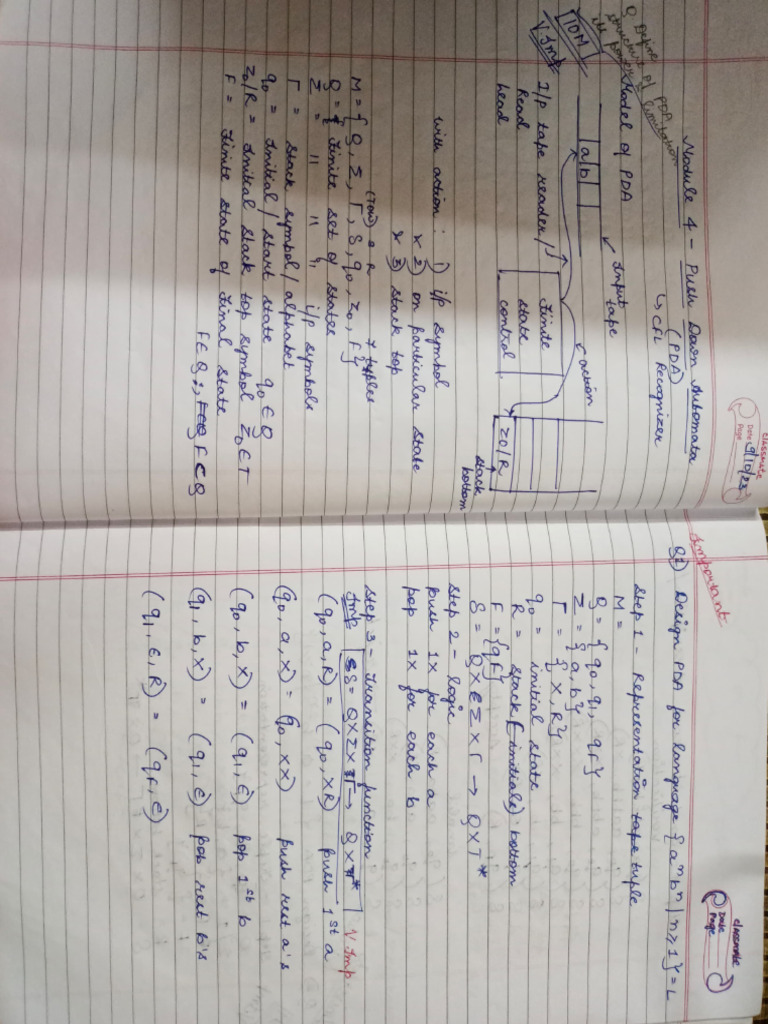 classmate
Date 9/10/23
Page
Module 4 - Push Down Automata
(PDA)
↳ CFL Recognizer
Q Define
structure of PDA
its power & limitation
Model of PDA
10M
V Imp
Input tape
a b
action
I/p tape reader/
Read
head
Finite
state
control
Z0/R
stack
bottom
with action : 1) i/p symbol
x 2) on particular state
x 3) stack top
(Tow) R 7 tuples
M = { Q, Σ, Γ, δ, q0, Z0, F}
Q = Finite set of states
Σ = " " " i/p symbols
Γ = stack symbol/alphabet
q0 = Initial/start state q0 ∈ Q
Z0/R = Initial stack top symbol Z0 ∈ Γ
F = Finite state of final state
F ∈ Q ;, F∈Q F ⊂ Q
classmate
Date
Page
Important
Q1) Design PDA for language { aⁿ bⁿ | n ≥ 1 } = L
Step 1 - Representation tape tuple
M =
Q = { q0, q1, qf}
Σ = { a, b}
Γ = { X, R}
q0 = initial state
R = stack (initiale) bottom
F = {qf}
δ = Q × Σ × Γ → Q × Γ*
Step 2 - logic
push 1X for each a
pop 1X for each b
Step 3 - Transition function
Imp δ = Q × Σ × Γ → Q × Γ* V Imp.
(q0, a, R) = (q0, XR) push 1st a
(q0, a, X) = (q0, XX) push rest a's
(q0, b, X) = (q1, ε) pop 1st b
(q1, b, X) = (q1, ε) pop rest b's
(q1, ε, R) = (qf, ε)